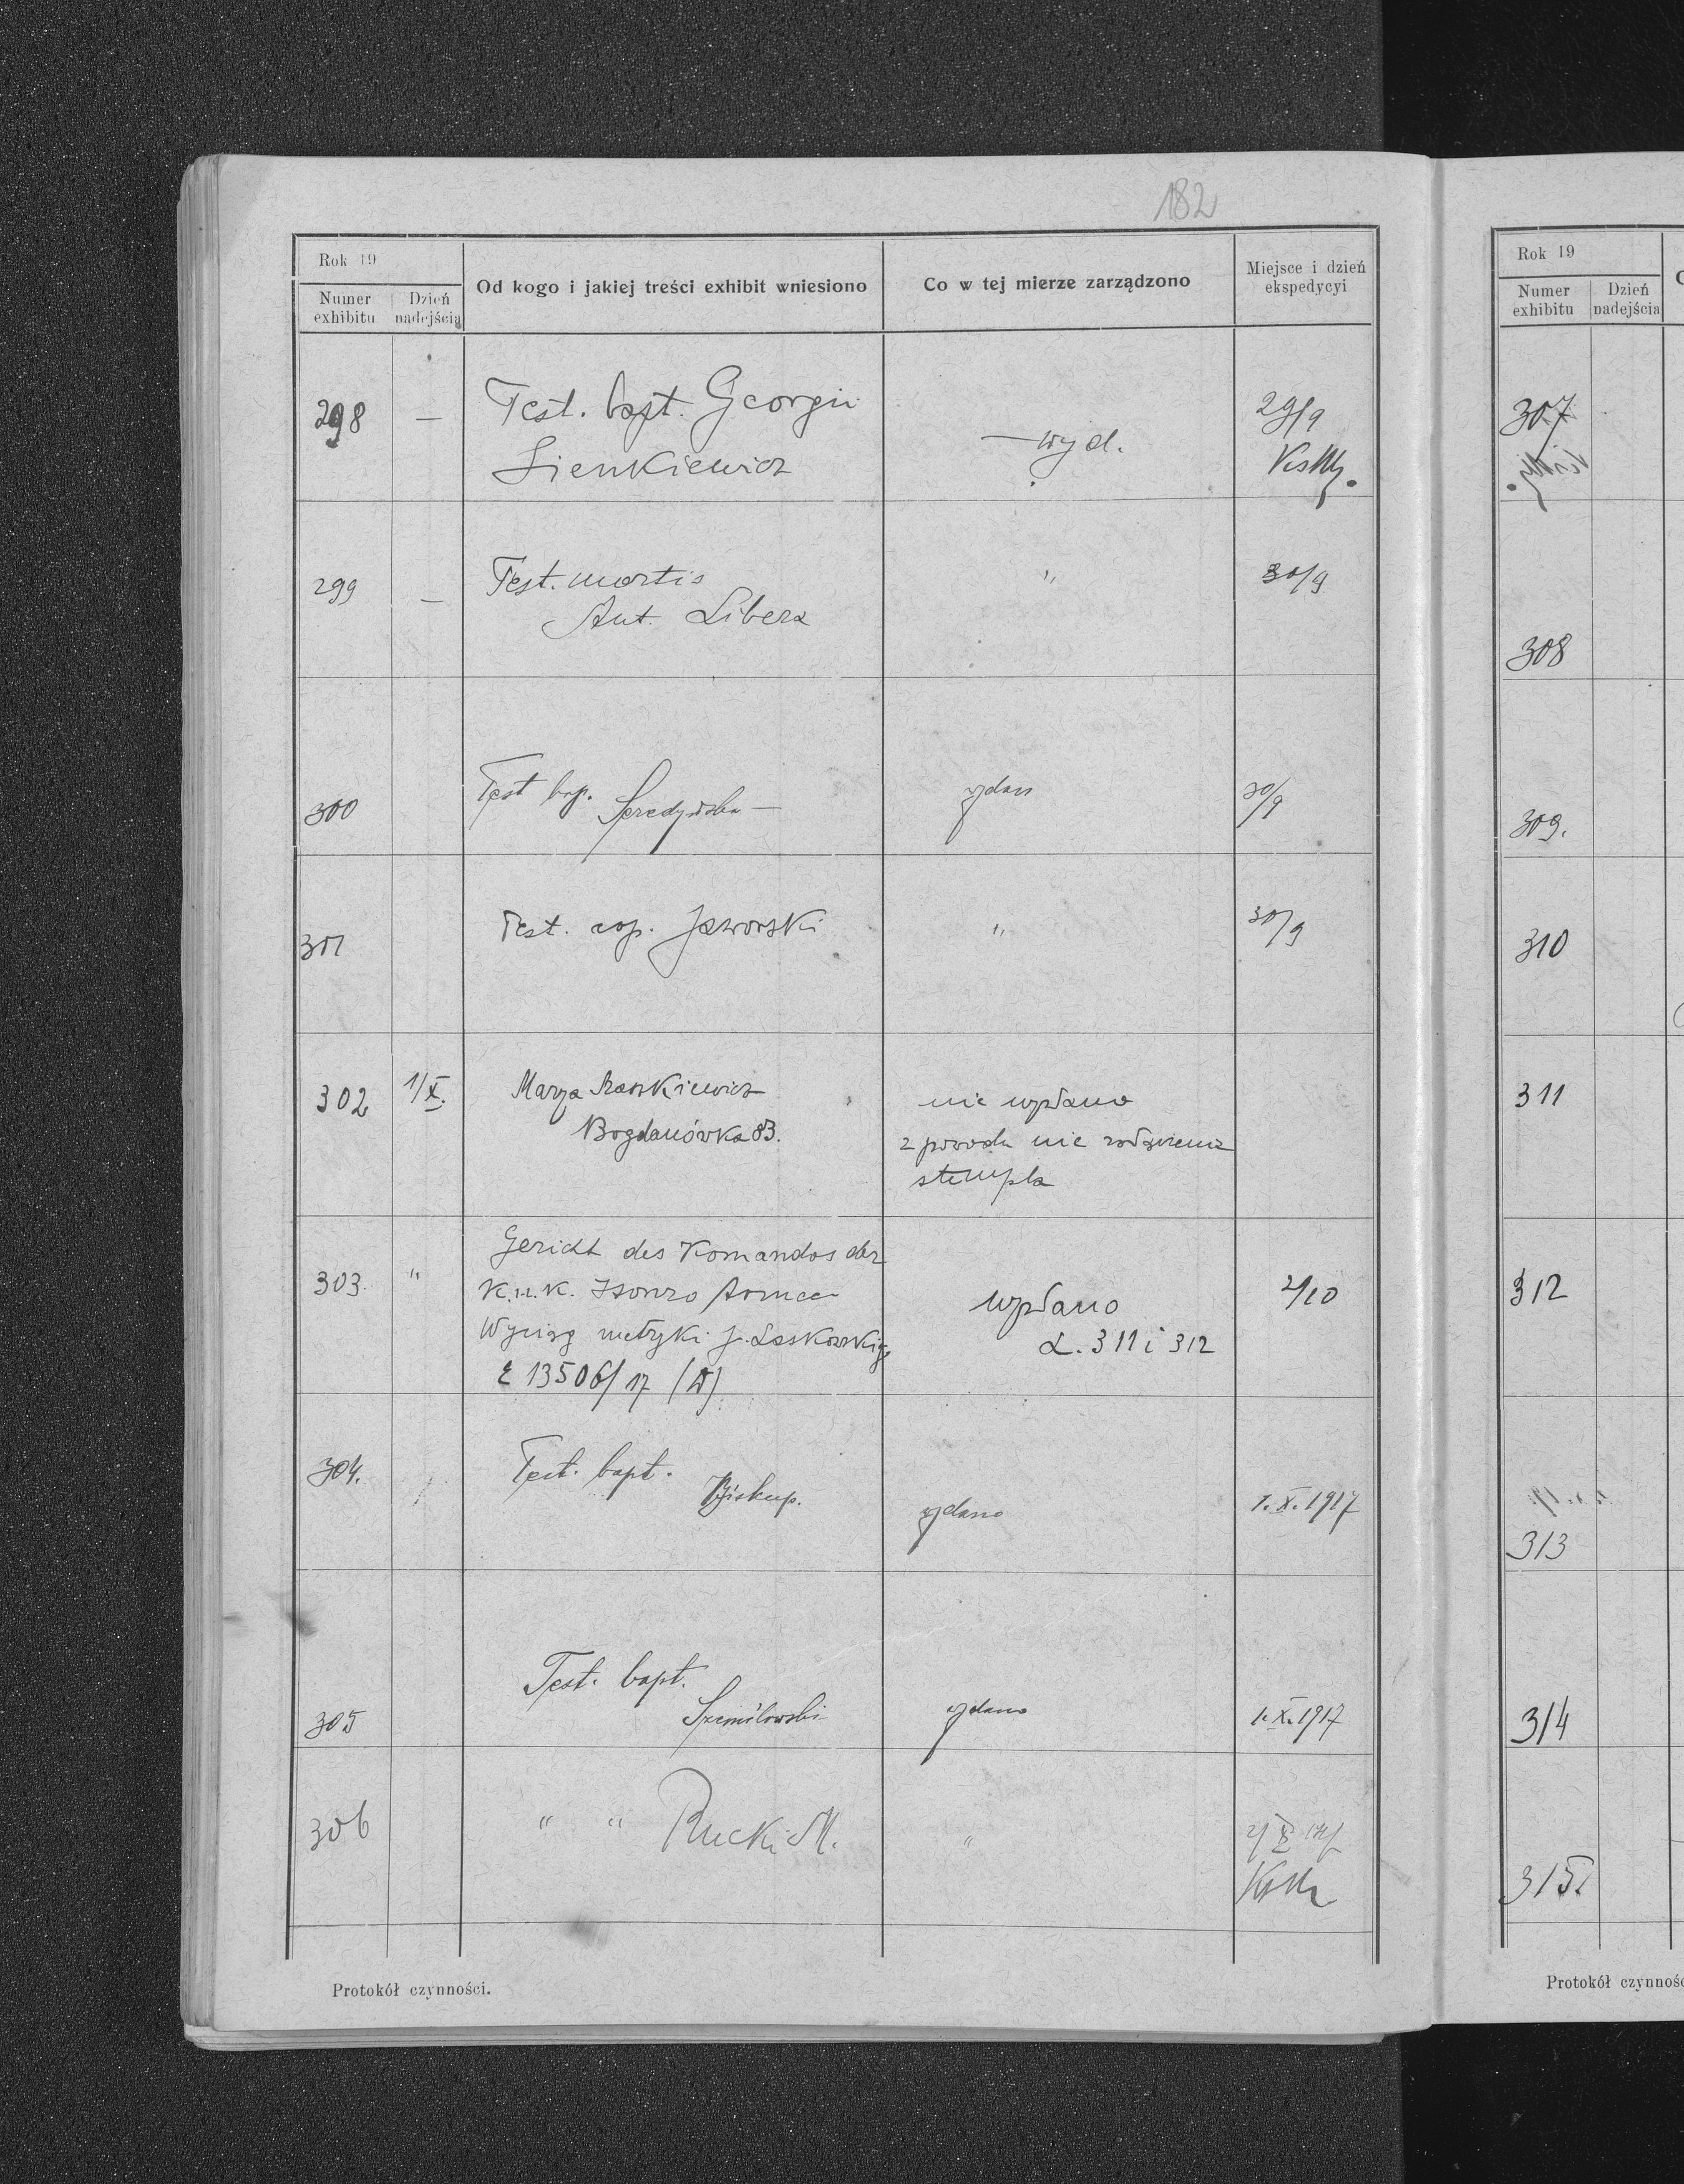 182
Rok 19
Numer exhibitu
Dzień nadejścia
Od kogo i jakiej treści exhibit wniesiono
Co w tej mierze zarządzono
Miejsce i dzień ekspedycyi
298 — Test. bapt. Georgii — wyd. 29/9
Sienkiewicz
299 — Test. mortis " 30/9
Ant. Libera
300 Test bap. 30/9
301 Test. cop. Jaworski " 30/9
302 1/X. Marya nie wydano
Bogdanówka 83. z powodu nie
stempla
303. " Gericht des Komandos der
K.u.K. Isonzo Armee wydano 2/10
Wyciąg metryki J. Laskowski L. 311 i 312
E 13506/17
304. Test. bapt.
Biskup. wydano 1.X.1917
305 Test. bapt.
wydano 1.X.1917
306 " " Rucki M. "
Protokół czynności.
Rok 19
Numer exhibitu
Dzień nadejścia
307
308
309.
310
311
312
313
314
315.
Protokół